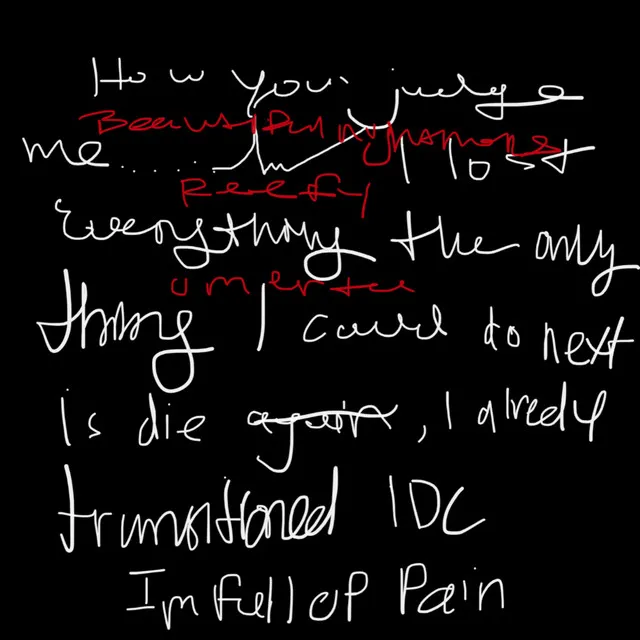 How you judge
Beautiful nightmare
me...... I lost
Reefy
Everything the only
omerta
thing I could do next
is die again, I already
transitioned IDC
Im full of Pain